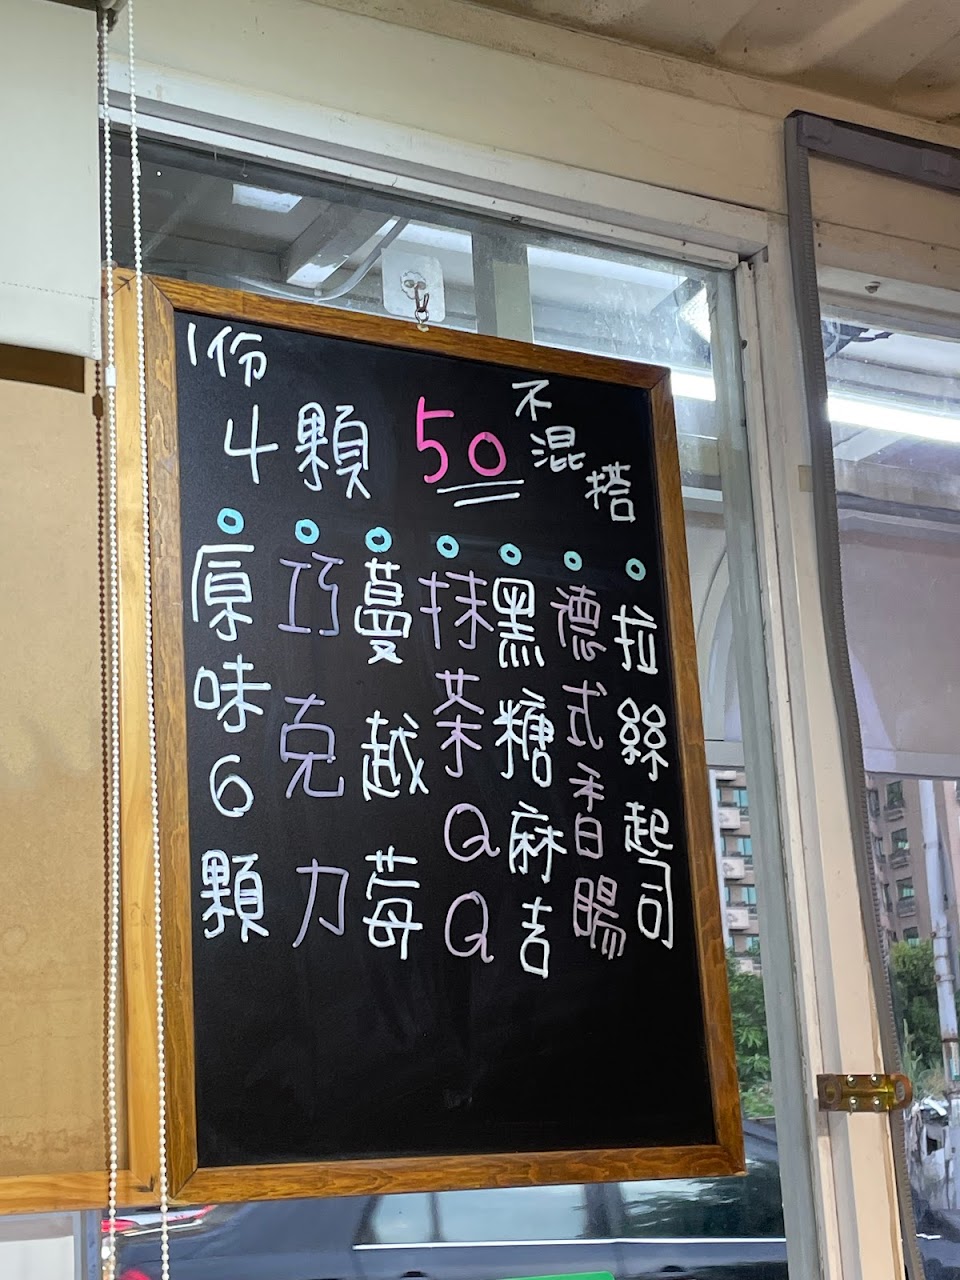 1份
4顆 50 不混搭
原味6顆
巧克力
蔓越莓
抹茶QQ
黑糖麻吉
德式香腸
拉絲起司